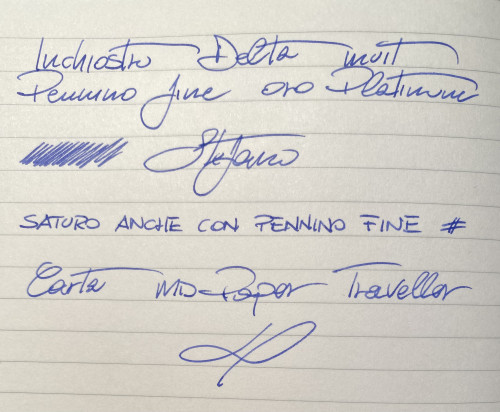 Inchiostro Delta
Pennino fine oro Platinum
Stefano
SATURO ANCHE CON PENNINO FINE #
Carta MD-Paper Traveller